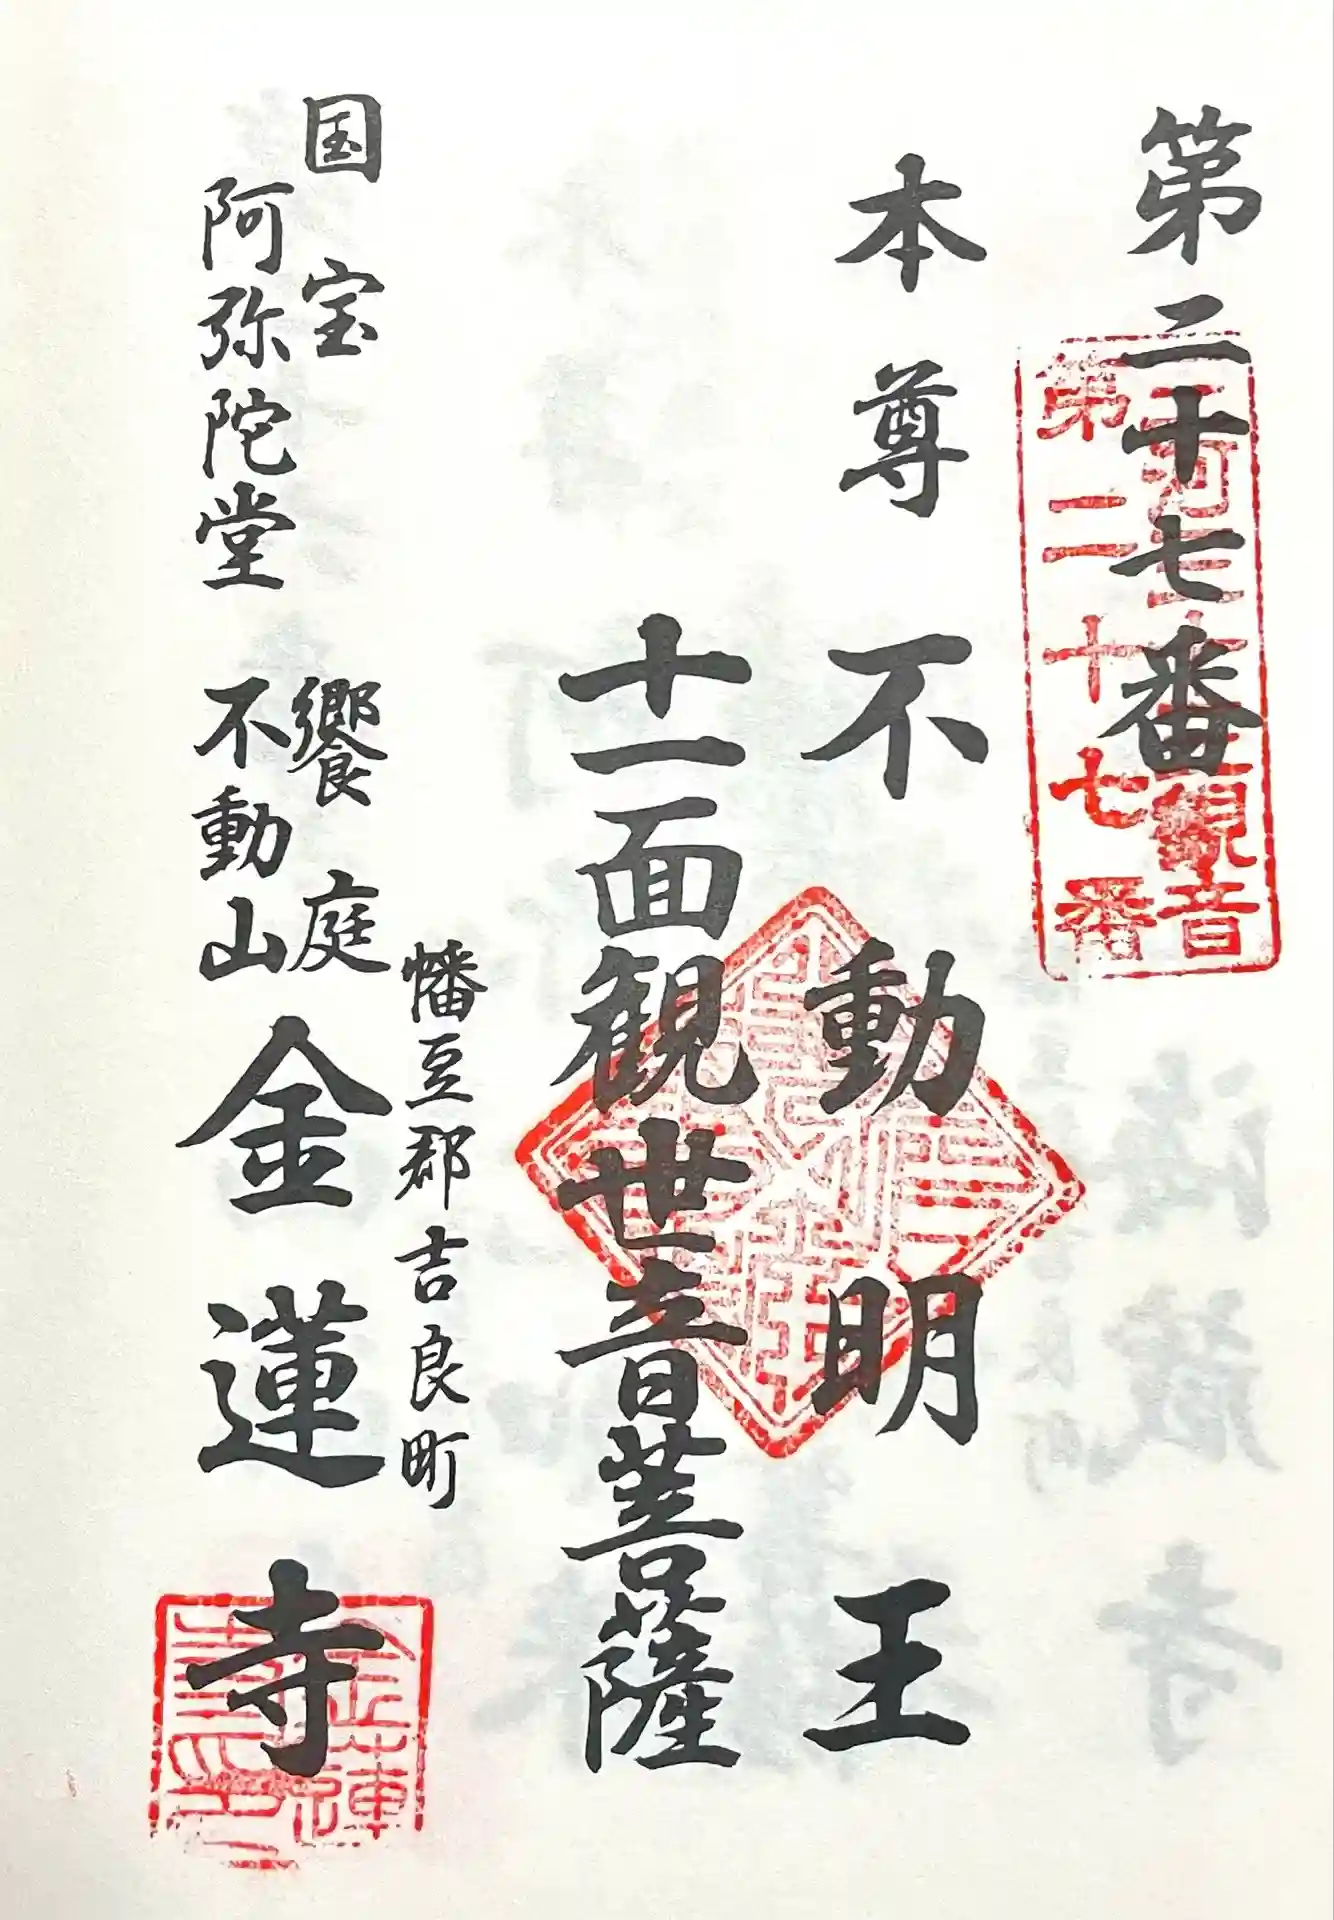 第二十七番
三河三十三観音
第二十七番
本尊 不動明王
十一面観世音菩薩
幡豆郡吉良町
国宝 饗庭
阿弥陀堂 不動山 金蓮寺
金蓮寺印